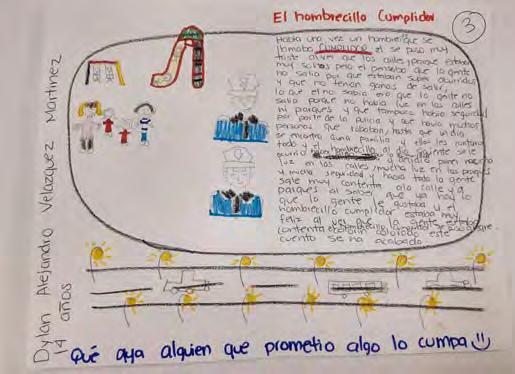 El hombrecillo Cumplidor
3
Había una vez un hombrecillo que se
llamaba CUMPLIDOR el se puso muy
triste al ver que las calles y parques estaban
muy solitos pero el pensaba que la gente
no salia por que estaban super aburridos
y que no tenian ganas de salir,
lo que el no sabia era que la gente no
salia porque no habia luz en las calles
ni parques y que tampoco habia seguridad
por parte de la policia y que habia muchas
personas que robaban, hasta que un dia
se encontro auna familia y ellos les contaron
todo y el hombrecillo al dia siguente se le
ocurrio
luz en las calles, mucha luz en los parques
y mucha seguridad y hacia toda la gente
sale muy contenta ala calle y a
parques al saber que ya hay lo
que la gente le gustaba y el
hombrecillo cumplidor estaba muy
feliz al ver que la gente estaba
contenta
cuento se ha acabado
Dylan Alejandro Velazquez Martinez
14 años
Qué aya alguien que prometio algo lo cumpa